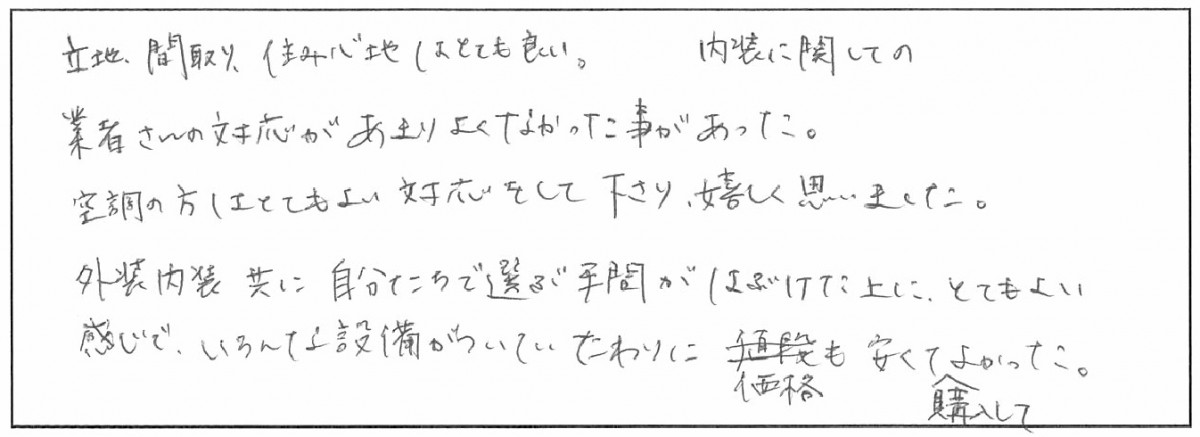 立地、間取り、住み心地はとても良い。 内装に関しての
業者さんの対応があまりよくなかった事があった。
空調の方はとてもよい対応をして下さり、嬉しく思いました。
外装内装共に自分たちで選ぶ手間がはぶけた上に、とてもよい
感じで、いろんな設備がついていたわりに値段も安くてよかった。
価格
購入して